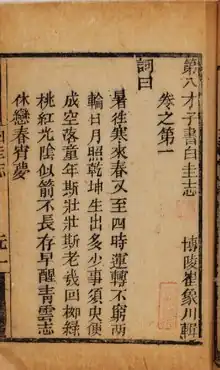 第八才子書白圭志
博陵崔象川輯
卷之第一
詞曰
暑往寒來春又至四時運轉不窮兩
輪日月照乾坤生出多少事須臾便
成空落童年斯壯壯斯老幾回柳綠
桃紅光陰似箭不長存早醒青雲志
休戀春宵夢